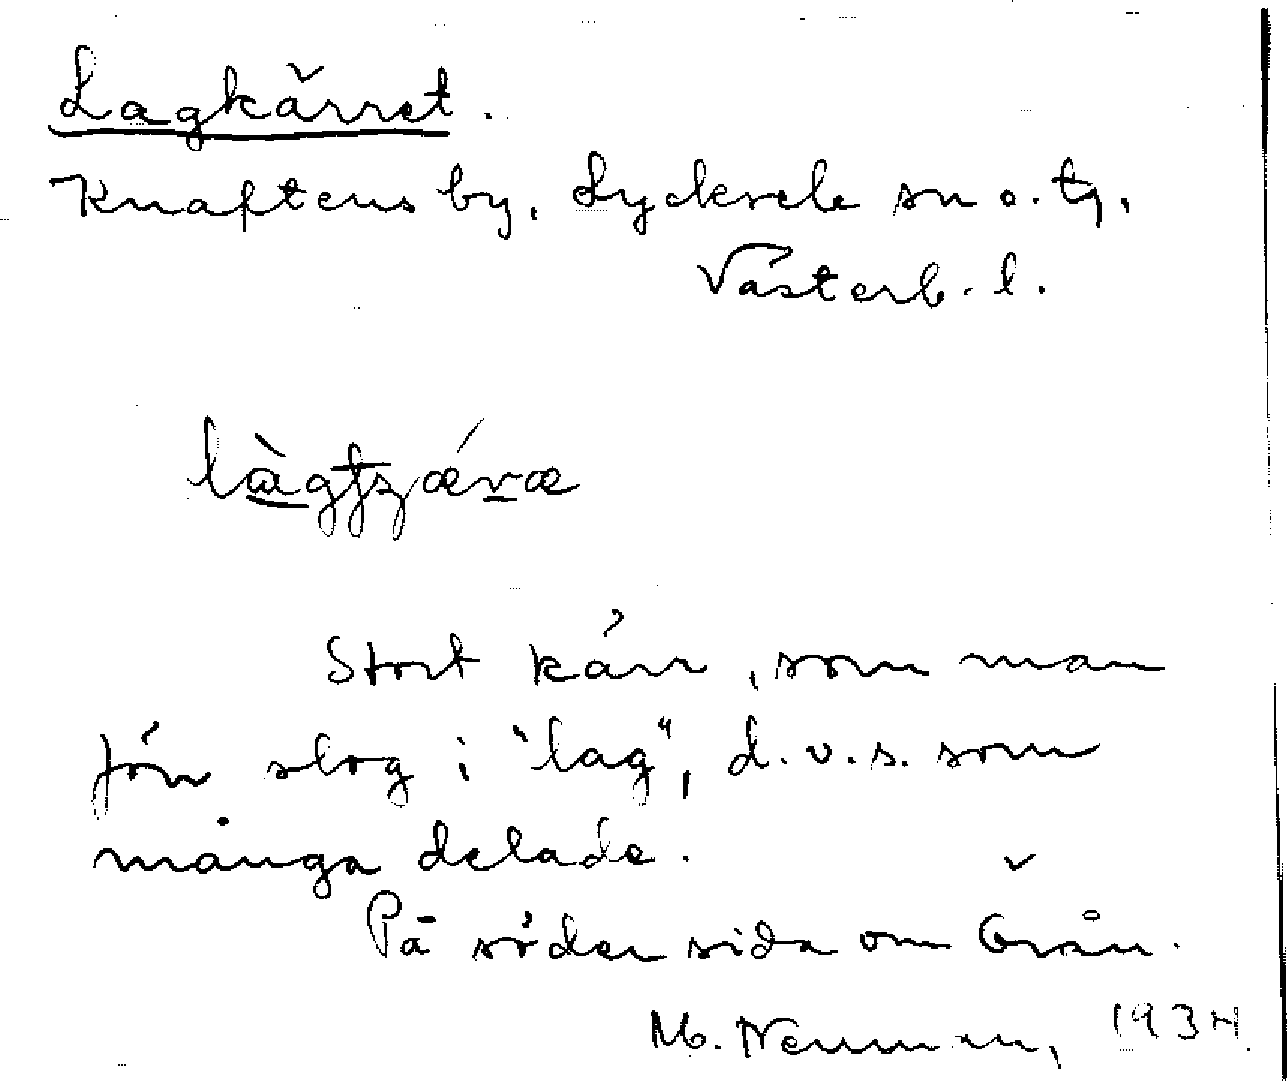 Lagkärret.
Knaftens by, Lycksele sn o. tg.
Västerb. l.
Stort kärr, som man
förr slog i "lag", d.v.s. som
många delade.
På söder sida om Örån.
M. Neuman, 1934.